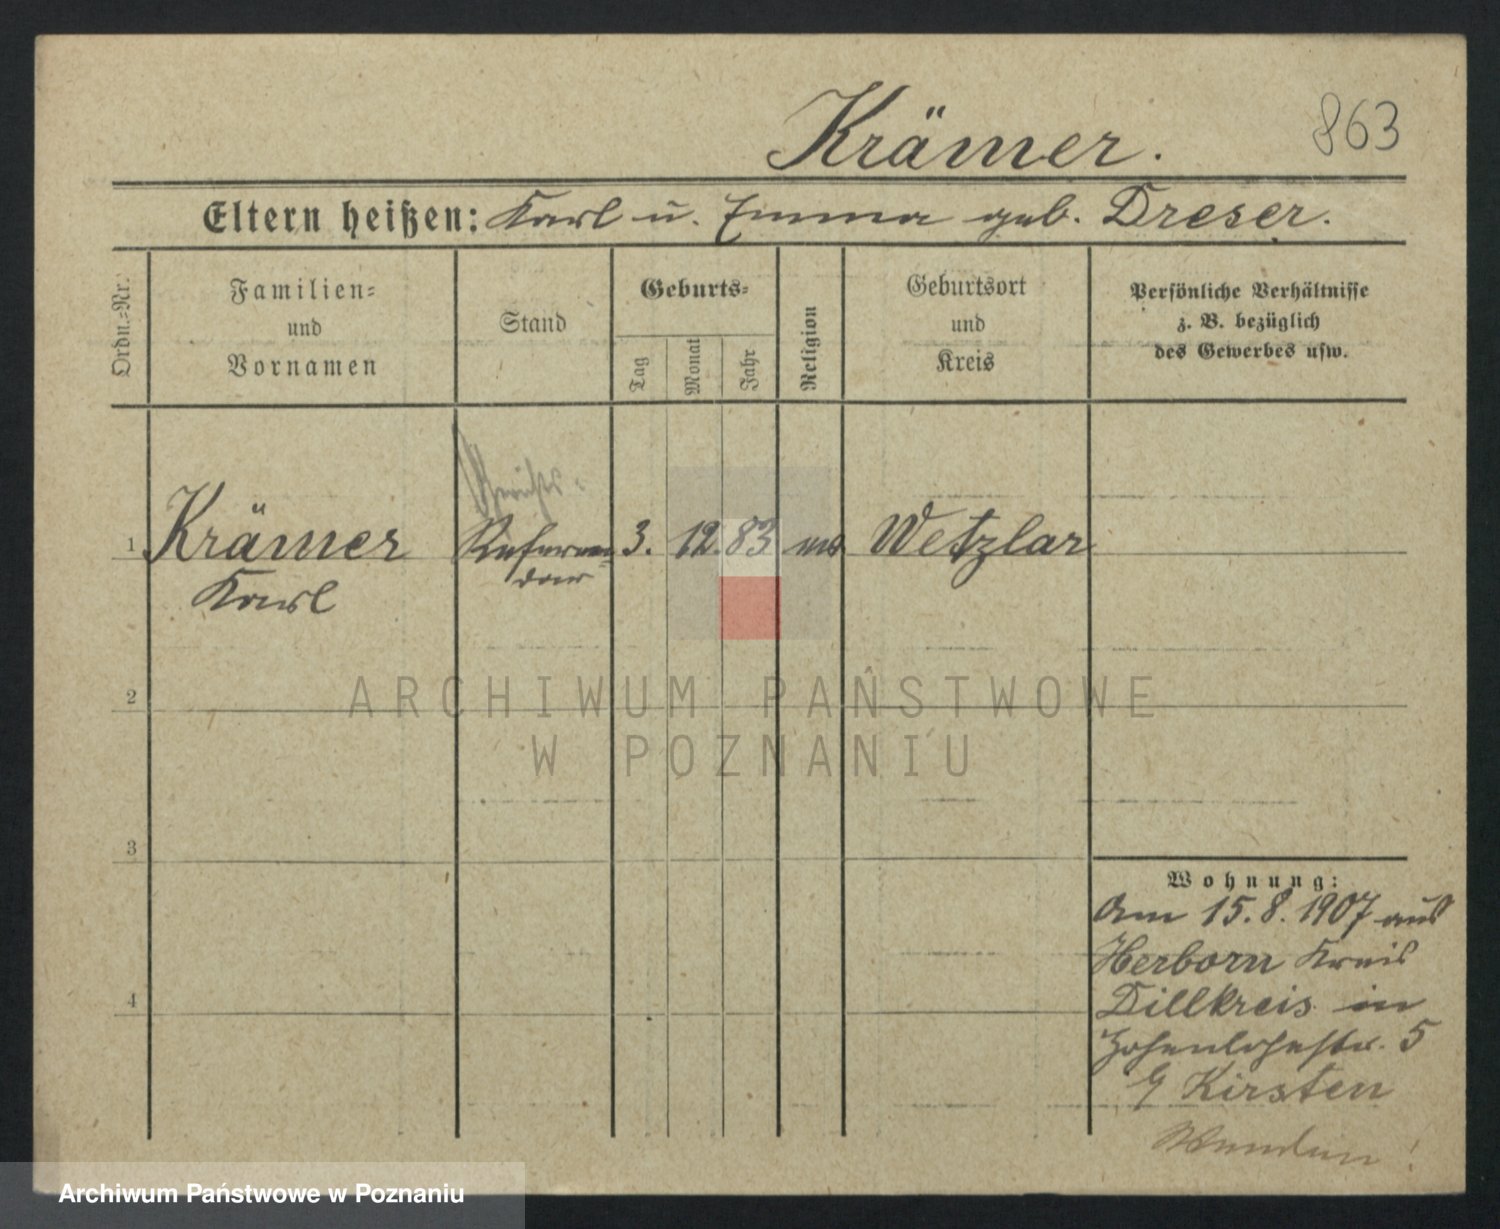 Krämer. 863
Eltern heißen: Karl u. Emma geb. Dreser.
Ordn.-Nr.
Familien-
und
Vornamen
Stand
Geburts-
Tag
Monat
Jahr
Religion
Geburtsort
und
Kreis
Persönliche Verhältnisse
z. B. bezüglich
des Gewerbes usw.
Gerichts-
1 Krämer Referen- 3. 12. 83 ev. Wetzlar
Karl dar
2
3
4
Wohnung:
Am 15.8.1907 aus
Herborn Kreis
Dillkreis in
Hohenlohestr. 5
b/ Kirsten
Wenden!
ARCHIWUM PAŃSTWOWE
W POZNANIU
Archiwum Państwowe w Poznaniu